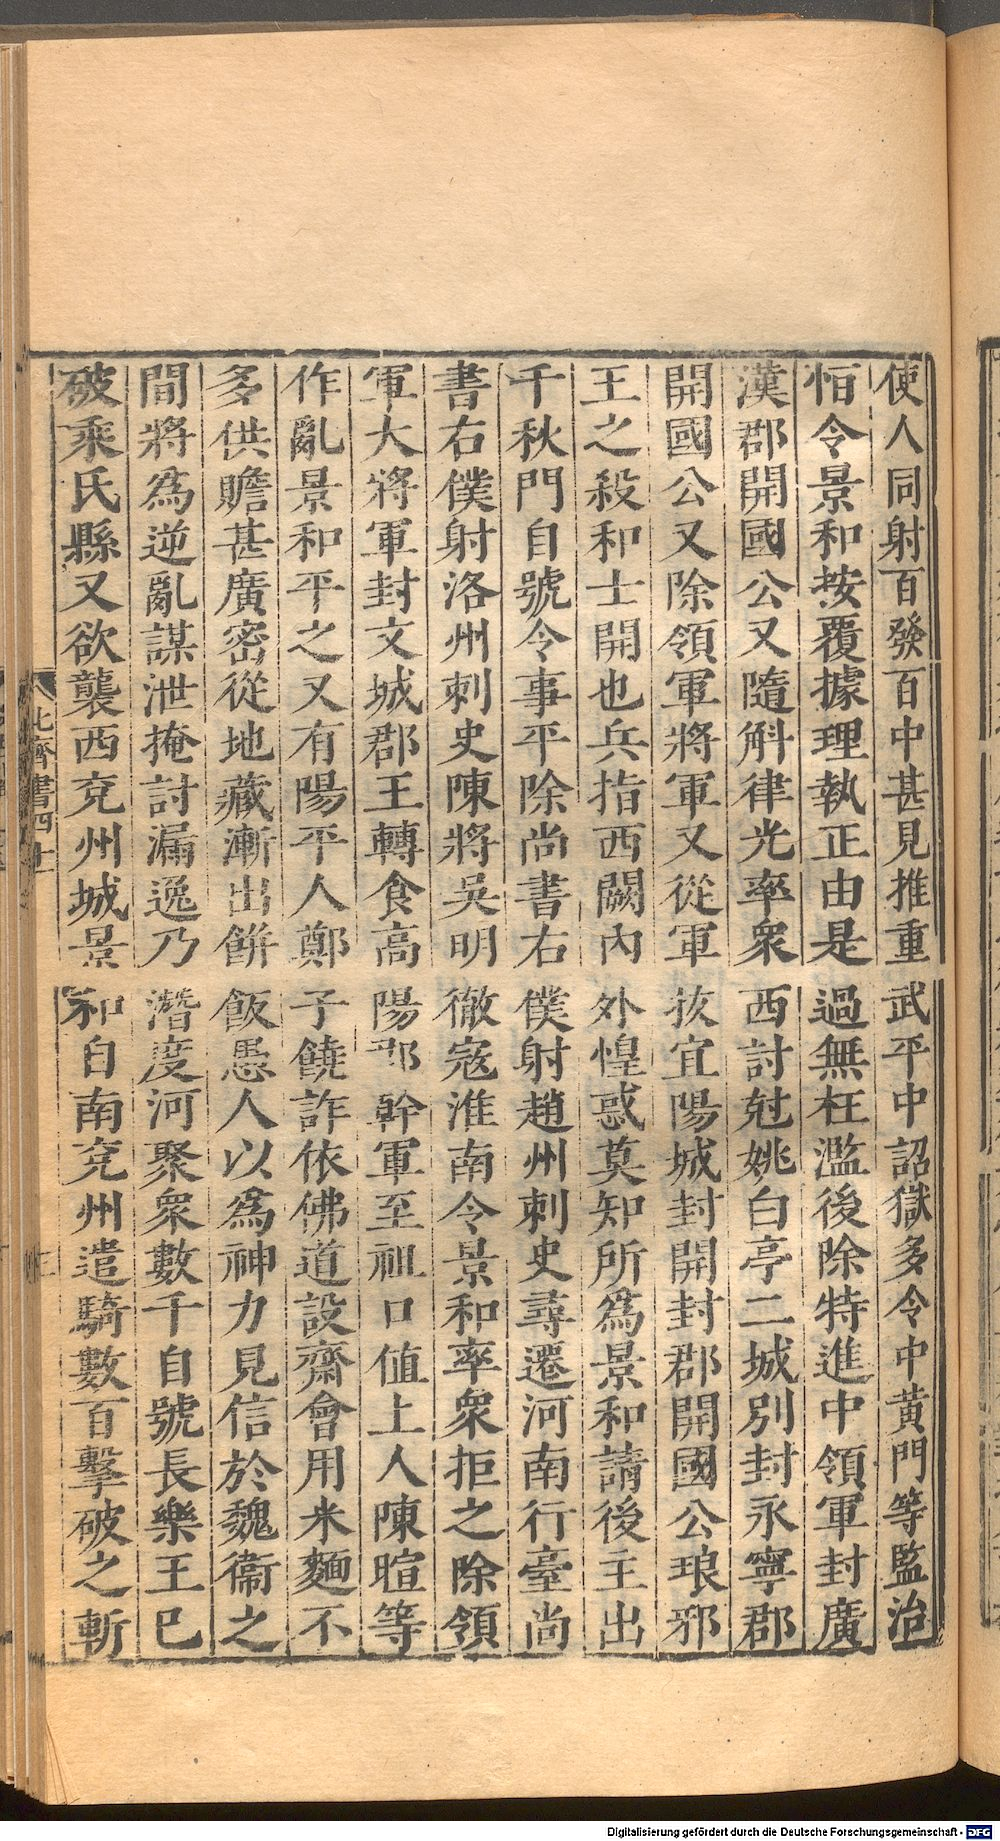 使人同射百發百中甚見推重武平中詔獄多令中黃門等監治
恒令景和按覆據理執正由是過無枉濫後除特進中領軍封廣
漢郡開國公又隨斛律光率衆西討尅姚白亭二城別封永寧郡
開國公又除領軍將軍又從軍拔宜陽城封開封郡開國公琅邪
王之殺和士開也兵指西闕內外惶惑莫知所爲景和請後主出
千秋門自號令事平除尚書右僕射趙州刺史尋遷河南行臺尚
書右僕射洛州刺史陳將吳明徹寇淮南令景和率衆拒之除領
軍大將軍封文城郡王轉食高陽郡幹軍至祖口值上人陳暄等
作亂景和平之又有陽平人鄭子饒詐依佛道設齋會用米麵不
多供贍甚廣密從地藏漸出餅飯愚人以爲神力見信於魏衞之
間將爲逆亂謀泄掩討漏逸乃潛度河聚衆數千自號長樂王已
破乘氏縣又欲襲西兗州城景和自南兗州遣騎數百擊破之斬
北齊書四十一
Digitalisierung gefördert durch die Deutsche Forschungsgemeinschaft - DFG